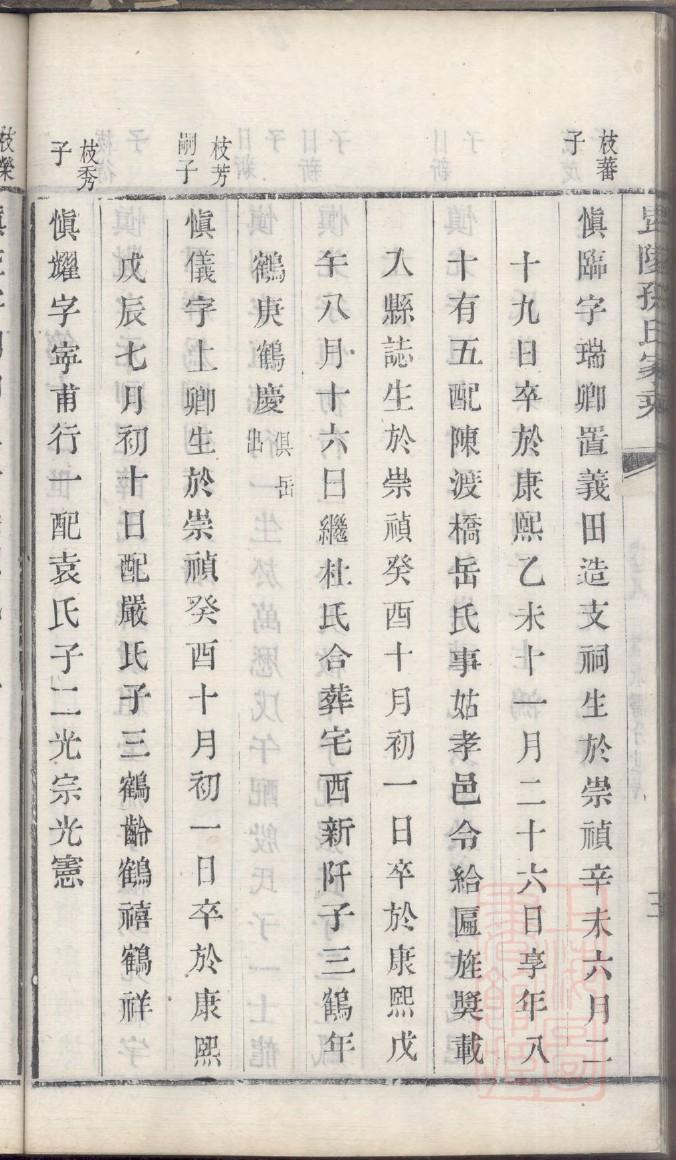 毘陵孫氏家乘
三
枝蕃
子
愼臨字瑞卿置義田造支祠生於崇禎辛未六月二
十九日卒於康熙乙未十一月二十六日享年八
十有五配陳渡橋岳氏事姑孝邑令給匾旌奬載
入縣誌生於崇禎癸酉十月初一日卒於康熙戊
午八月十六日繼杜氏合葬宅西新阡子三鶴年
鶴庚鶴慶俱岳
出
枝芳
嗣子
愼儀字上卿生於崇禎癸酉十月初一日卒於康熙
戊辰七月初十日配嚴氏子三鶴齡鶴禧鶴祥
枝秀
子
愼耀字寧甫行一配袁氏子二光宗光憲
枝榮